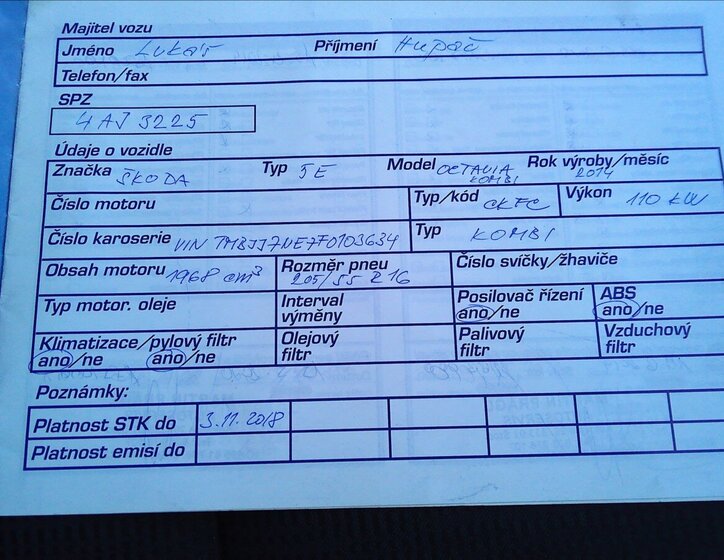 Majitel vozu
Jméno Lukáš Příjmení Hupač
Telefon/fax
SPZ
4AJ 3225
Údaje o vozidle
Značka ŠKODA Typ 5E Model OCTAVIA KOMBI Rok výroby/měsíc 2014
Číslo motoru Typ/kód CKFC Výkon 110 kW
Číslo karoserie VIN TMBJJ7NE7F0103634 Typ KOMBI
Obsah motoru 1968 cm³ Rozměr pneu 205/55 R16 Číslo svíčky/žhaviče
Typ motor. oleje Interval výměny Posilovač řízení ano/ne ABS ano/ne
Klimatizace/pylový filtr ano/ne ano/ne Olejový filtr Palivový filtr Vzduchový filtr
Poznámky:
Platnost STK do 3.11.2018
Platnost emisí do